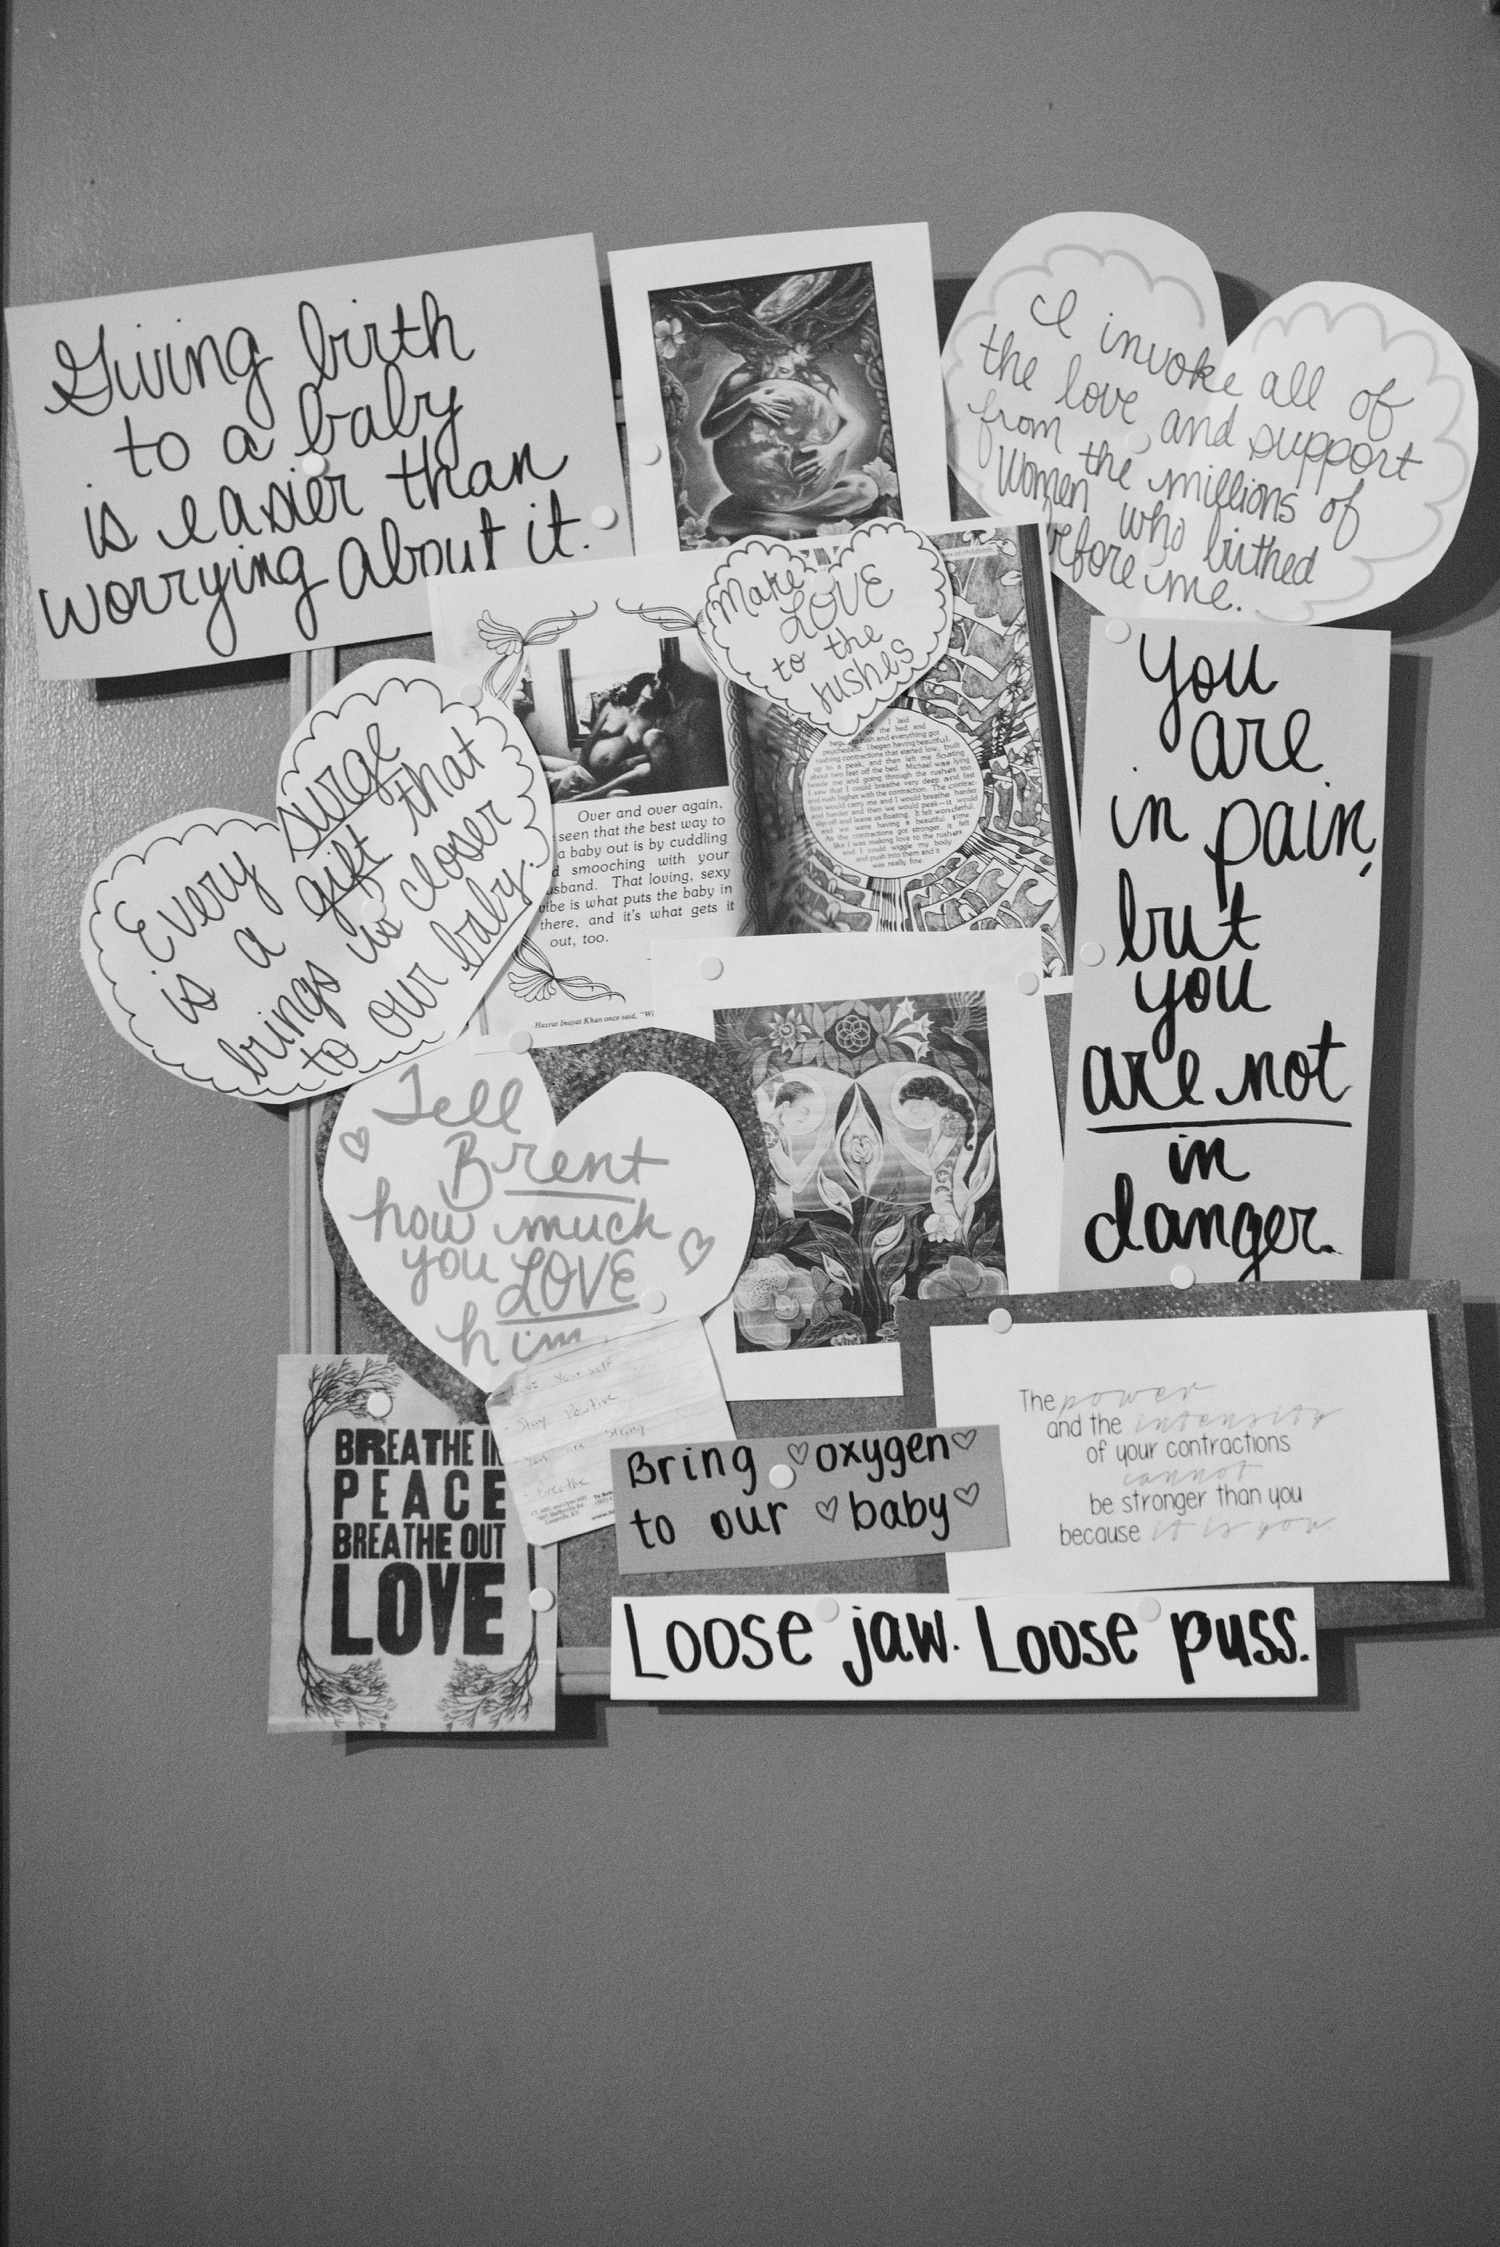 Giving birth
to a baby
is easier than
worrying about it.
I invoke all of
the love and support
from the millions of
women who birthed
before me.
Make
LOVE
to the
rushes
of childbirth
I laid
on the bed and
began to rush and everything got
psychedelic. I began having beautiful,
rushing contractions that started low, built
up to a peak, and then left me floating
about two feet off the bed. Michael was lying
beside me and going through the rushes too.
I saw that I could breathe very deep and fast
and rush higher with the contraction. The contrac-
tion would carry me and I would breathe harder
and harder and then we would peak—it would
slip off and leave us floating. It felt wonderful,
and we were having a beautiful time.
As the contractions got stronger, it felt
like I was making love to the rushes
and I could wiggle my body
and push into them and it
was really fine.
Over and over again,
seen that the best way to
a baby out is by cuddling
smooching with your
husband. That loving, sexy
vibe is what puts the baby in
there, and it's what gets it
out, too.
Hazrat Inayat Khan once said,
Every surge
is a gift that
brings us closer
to our baby.
You
are
in pain,
but
you
are not
in
danger.
Tell
Brent
how much
you LOVE
him
Love Yourself
- Stay Positive
- You are Strong
- Breathe
BREATHE IN
PEACE
BREATHE OUT
LOVE
Bring oxygen
to our baby
The power
and the intensity
of your contractions
cannot
be stronger than you
because it is you.
Loose jaw. Loose puss.